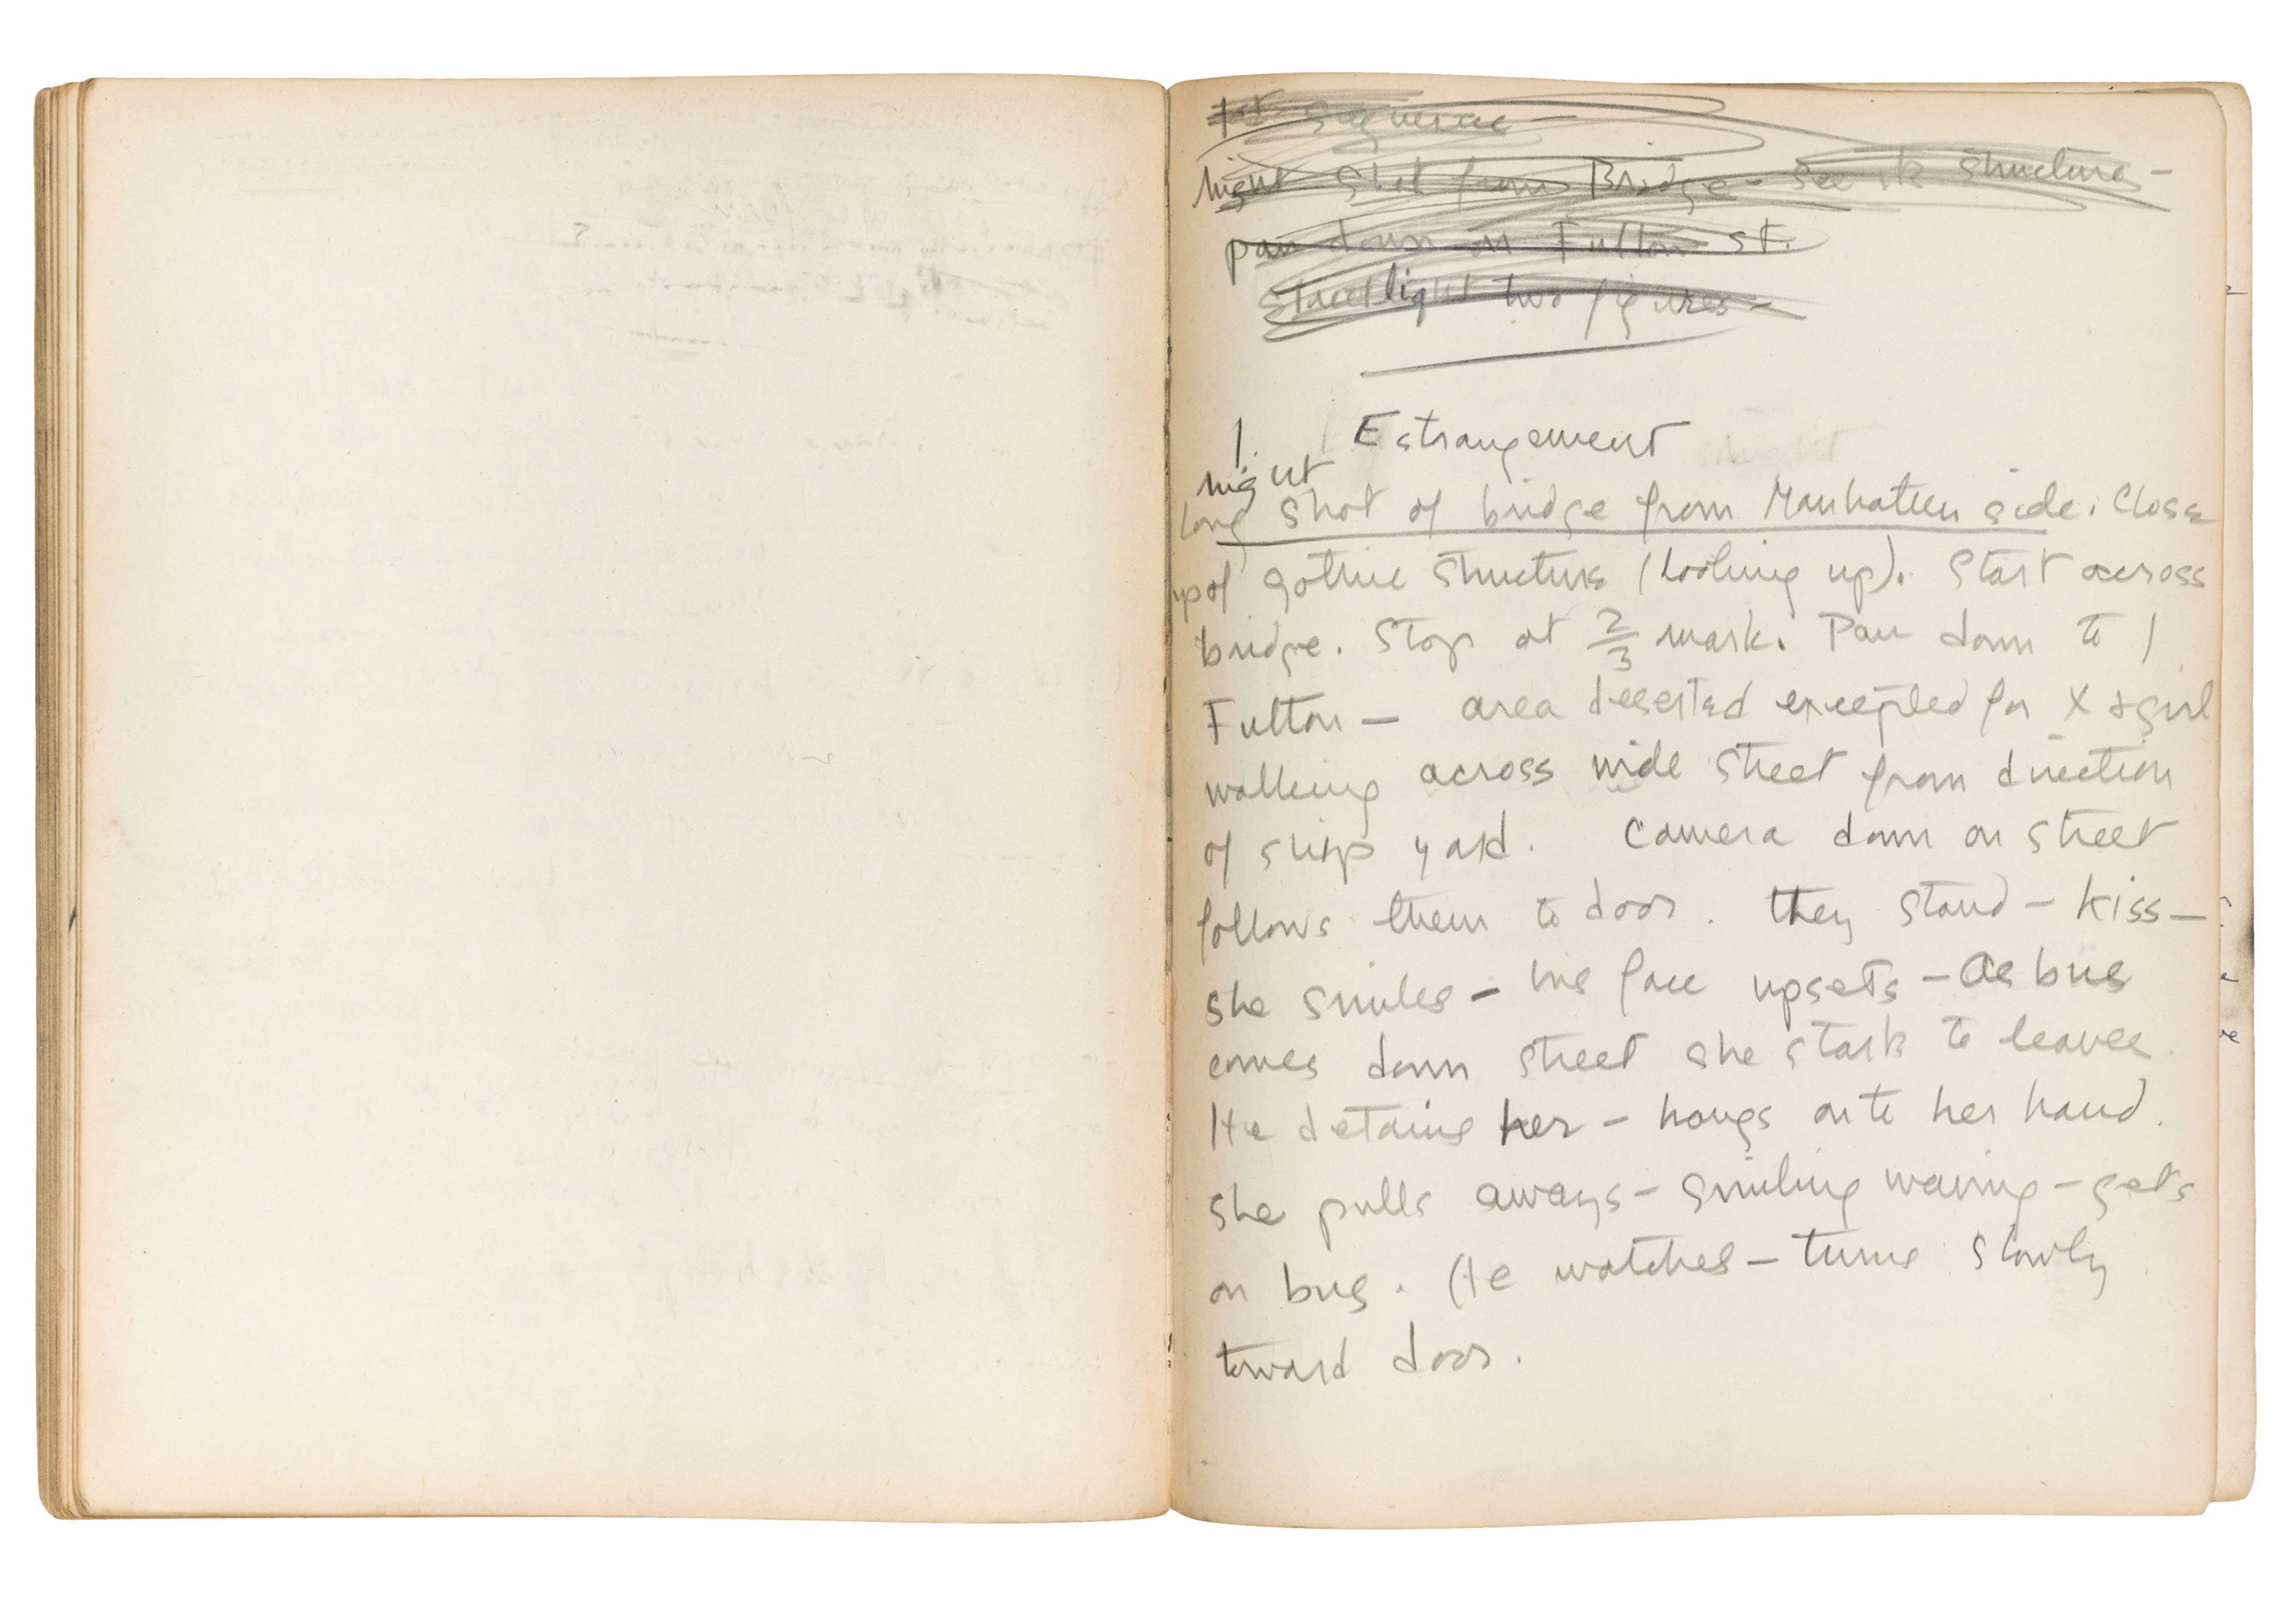 1st Sequence —
night shot from Bridge - see structure -
pan down on Fulton St.
Streetlight two figures -
1. Estrangement
night
long shot of bridge from Manhatten side. Close
up of gothic structure (looking up). Start across
bridge. Stop at 2/3 mark. Pan down to 1
Fulton — area deserted excepted for X & girl
walking across wide street from direction
of ship yard. Camera down on street
follows them to door. they stand — kiss —
she smiles — his face upsets — As bus
comes down street she starts to leave.
He detains her — hangs onto her hand.
she pulls aways — smiling waving — gets
on bus. He watches — turns slowly
toward door.